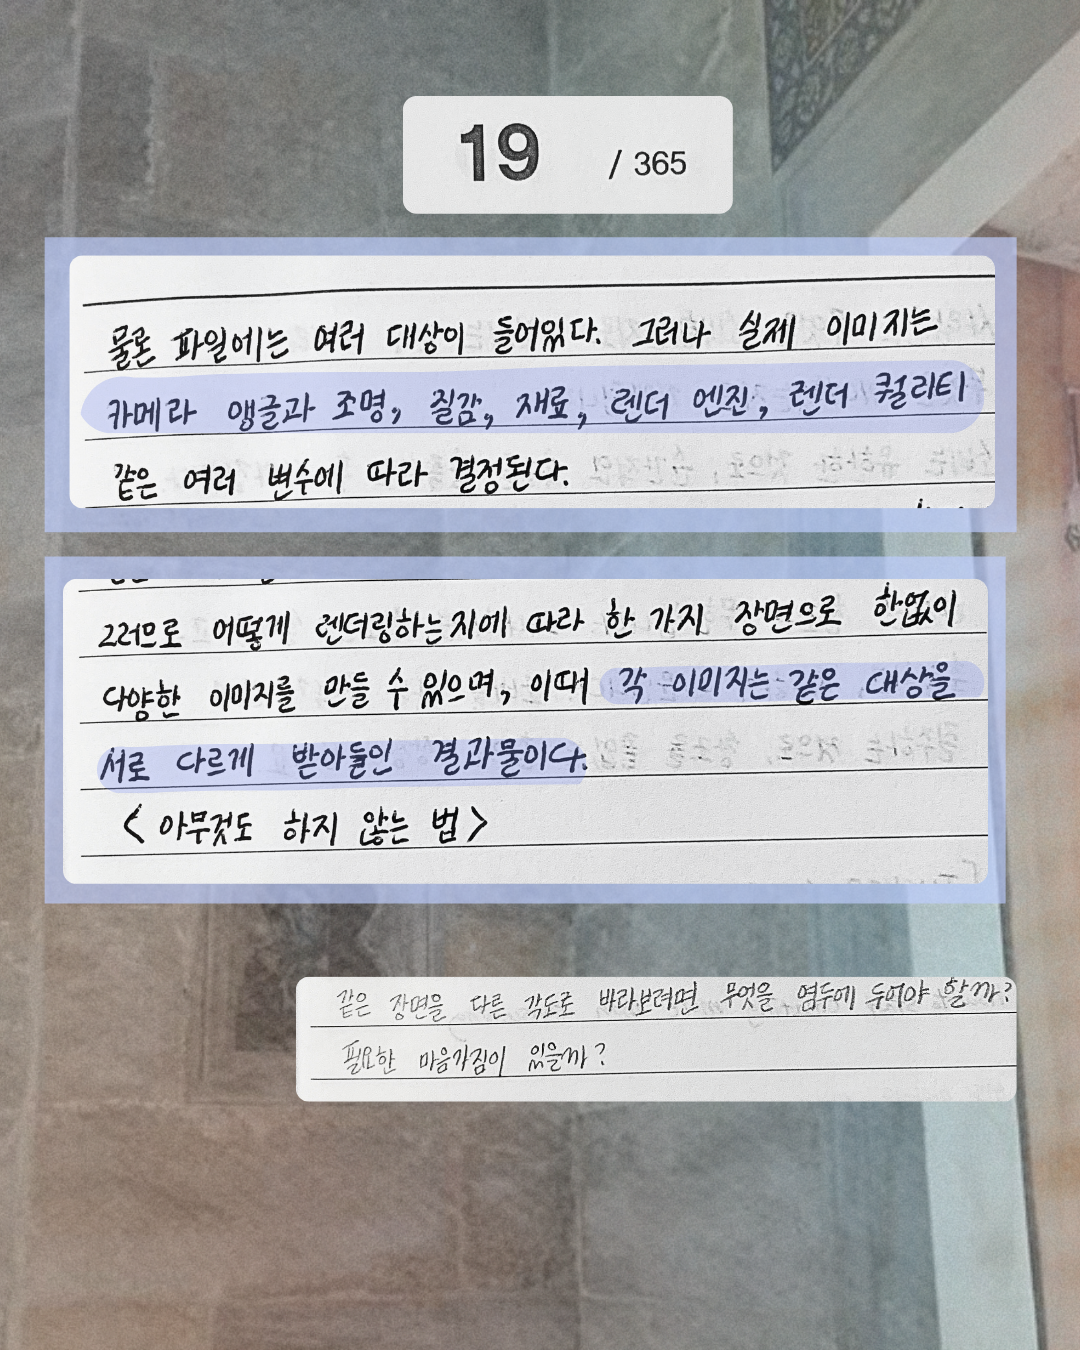 19 / 365
물론 파일에는 여러 대상이 들어있다. 그러나 실제 이미지는
카메라 앵글과 조명, 질감, 재료, 렌더 엔진, 렌더 퀄리티
같은 여러 변수에 따라 결정된다.
그러므로 어떻게 렌더링하는지에 따라 한 가지 장면으로 한없이
다양한 이미지를 만들 수 있으며, 이때 각 이미지는 같은 대상을
서로 다르게 받아들인 결과물이다.
<아무것도 하지 않는 법>
같은 장면을 다른 각도로 바라보려면 무엇을 염두에 두어야 할까?
필요한 마음가짐이 있을까?